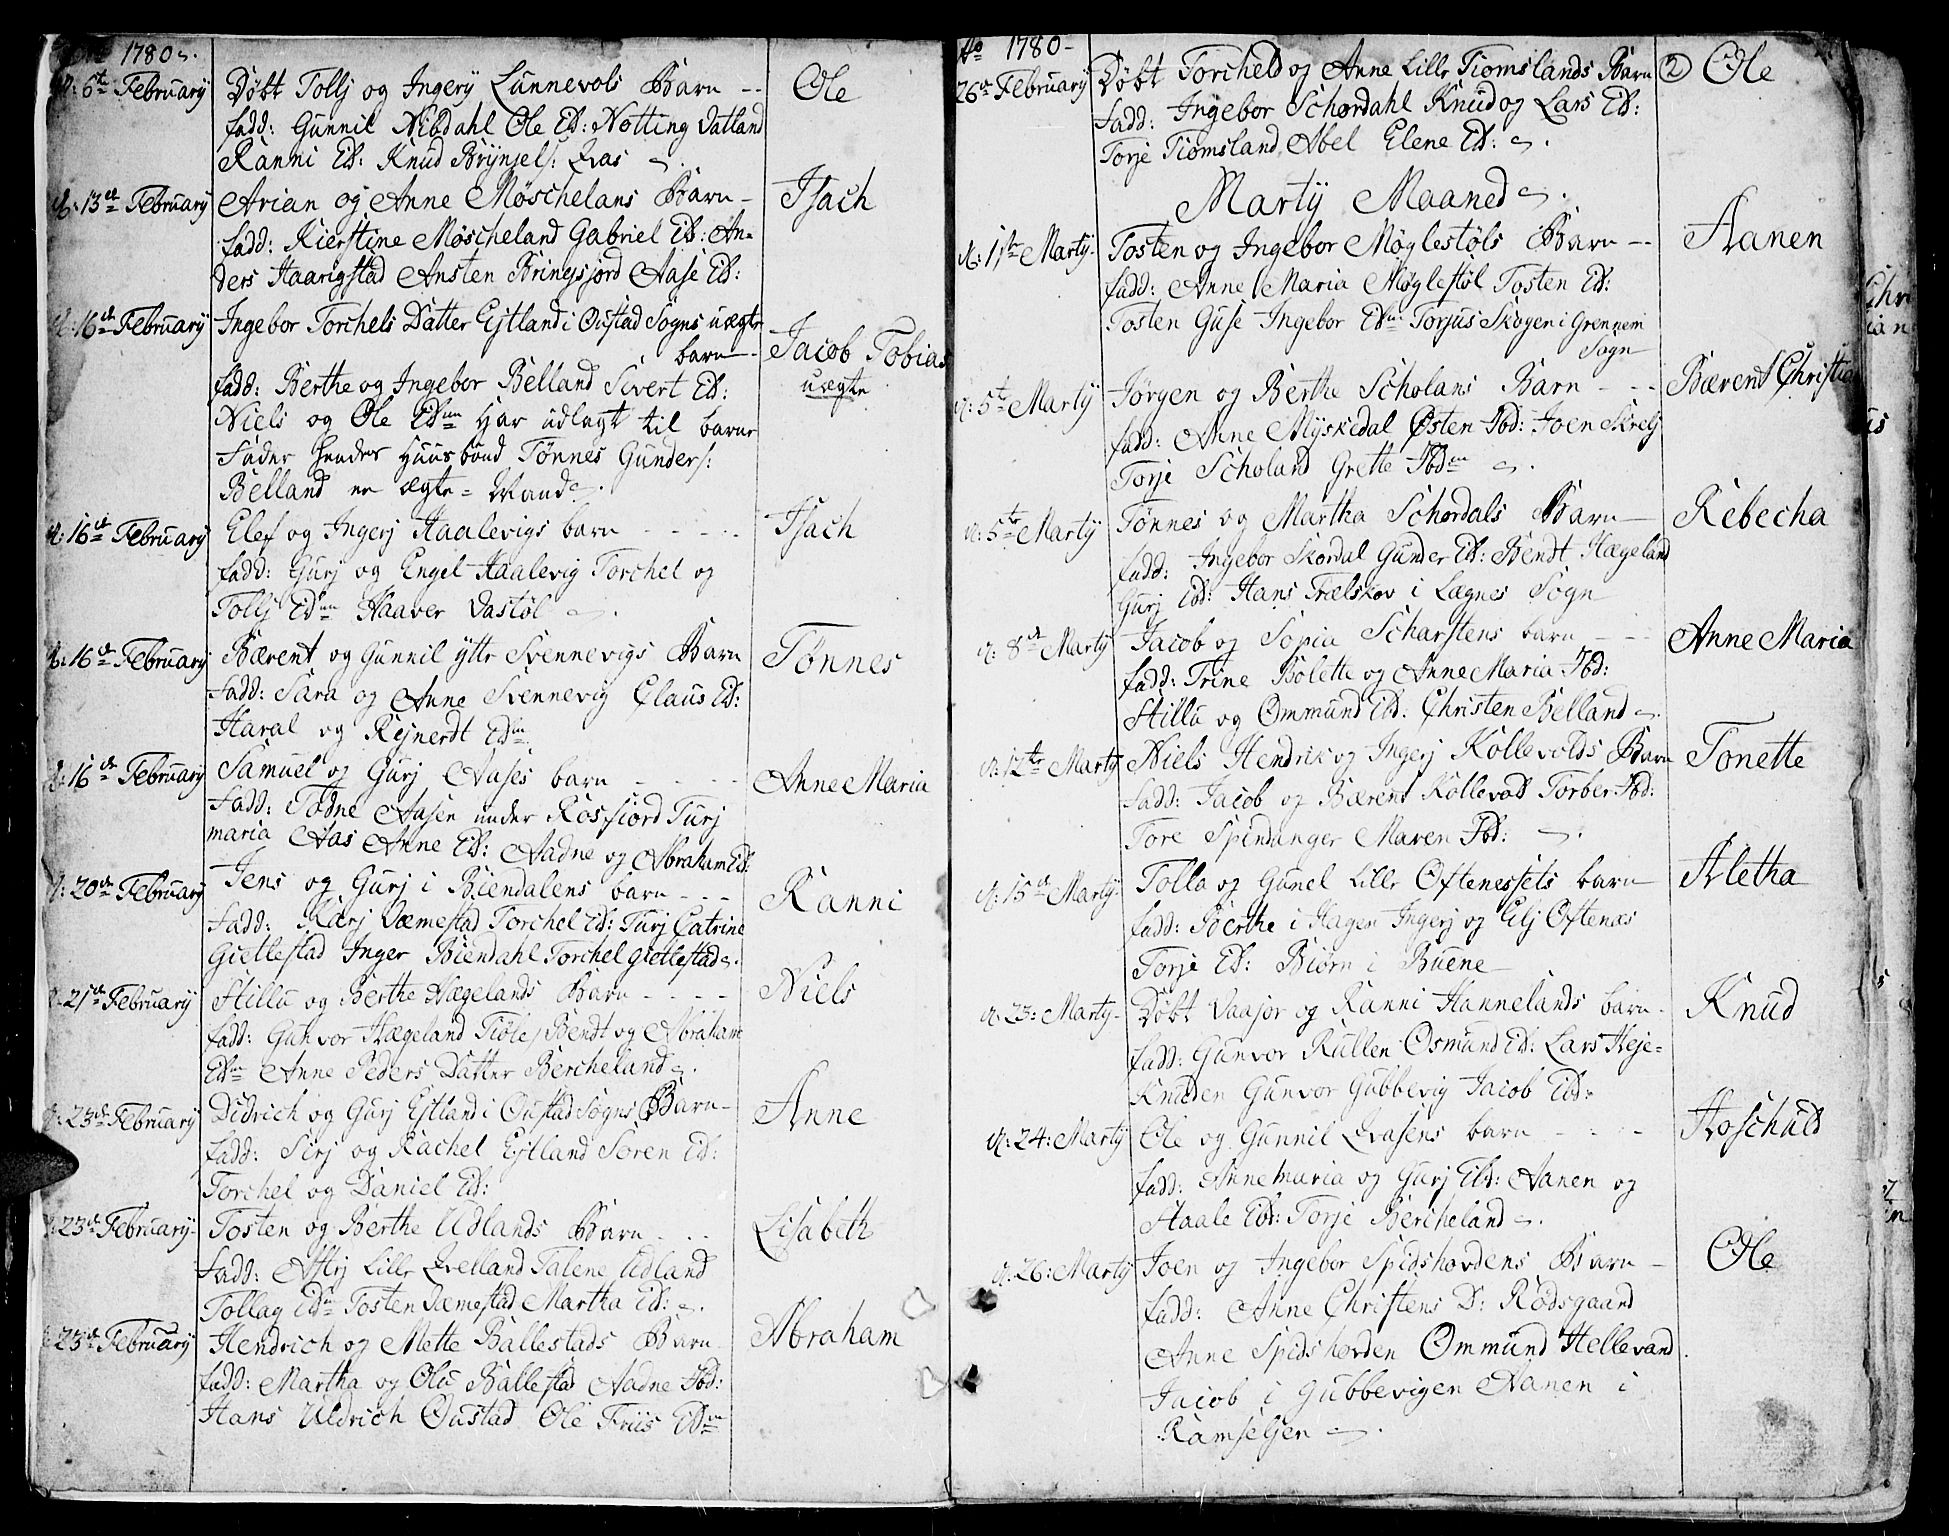 1780
d: 6te February Døbt Tollj og Ingerj Lunnevols Barn -- Ole
fadd: Gunnil Nibdahl Ole ib: Notting Vatland
Ranni ib: Knud Brynjels: Qvas
d: 13de February Arian og Anne Møschelans Barn - Isach
fadd: Kierstine Møscheland Gabriel ib: An-
ders Haarigstad Ansten Bringsjord Aase ib:
d: 16de February Ingebor Torchels Datter Ejtland i Oustad Sogns uægte
barn - Jacob Tobias
uægte
fadd: Berthe og Ingebor Belland Sivert ib:
Niels og Ole ibm Har udlagt til barne
Fader hendes Huusbond Tønnes Gunders:
Belland en ægte = Mand
d: 16de February Elef og Ingerj Haalevigs barn - - - - Isach
fadd: Gurj og Engel Haalevig Torchel og
Tollj ibm Haaver Vastøl
d: 16de February Bærent og Gunnil ytte Svennevigs Barn Tønnes
fadd: Sara og Anne Svennevig Claus ib:
Haral og Rejnerdt ibm
d: 16de February Samuel og Gurj Aases barn - - - - Anne Maria
fadd: Todne Aasen under Rosfiord Turj
maria Aas Anne ib: Aadne og Abraham ib:
d: 20de February Jens og Gurj i Biendalens barn - - - Ranni
fadd: Karj Væmestad Torchel ib: Turj Catrine
Giettestad Inger Biendahl Torchel Giettestad
d: 21de February Stillu og Berthe Hægelands Barn - - - - Niels
fadd: Gunvor Hægeland Tiøle, Bendt og Abraham
ibm Anne Peders Datter Bercheland
d: 23de February Didrich og Gurj Ejtland i Oustad Sogns Barn - Anne
fadd: Sirj og Rachel Ejtland Søren ib:
Torchel og Daniel ib:
d: 23de February - Tosten og Berthe Udlands Barn - - - Lisabeth
fadd: Atlej Lille Qvelland Talene Udland
Tollag ibm Tosten Væmestad Martha ib:
d: 23de February Hendrich og Mette Ballestads Barn - Abraham
fadd: Martha og Olu Ballestad Aadne Ibd:
Hans Uldrich Oustad Ole Friis ibm
Ao 1780 -
26de February Døbt Torcheld og Anne Lille Tiomslands Barn 2 Ole
fadd: Ingebor Schordahl Knud og Lars ib:
Torje Tiomsland Abel Elene ib:
Martij Maaned
d: 1ste Martij - Tosten og Ingebor Møglestøls Barn -- Aanen
fadd: Anne Maria Møglestøl Tosten ib:
Tosten Guse Ingebor ibm Torjus Skogen i Grennem
Sogn
d: 5te Martij Jørgen og Berthe Scholans Barn - - - Bærent Christia
fadd: Anne Myskedal Østen Ibd: Joen Skrelj
Torje Scholand Grette Ibdm
d: 5te Martij Tønnes og Martha Schordals Barn - Rebecha
fadd: Ingebor Skordal Gunder ib: Bendt Hægeland
Gurj ibd: Hans Trælskov i Lægnes Sogn
d: 8de Martij Jacob og Sopia Scharstens barn - - - Anne Maria
fadd: Trine Bolette og Anne Maria Ibd:
Stillu og Ommund ibd: Christen Belland
d: 12te Martij Niels Hendrik og Ingerj Kollevolds Barn Tonette
fadd: Jacob og Bærent Kollevold Torber Ibd:
Tore Spindanger Maren Ibd:
d: 15de Martij Tolla og Gunel Lille Oftenessets barn Aletha
fadd: Berthe i Hagen Ingerj og Elj Oftenæs
Torje ib: Biørn i Buene
d: 23: Martij - Døbt Vaasor og Ranni Hannelands barn - Knud
fadd: Gunvor Rullen Osmund ib: Lars Heje-
Knuden Gunvor Gubbevig Jacob ibd:
d: 24: Martij Ole og Gunnil Qvasens barn - - - Aoschuld
fadd: Anne maria og Gurj ibd: Aanen og
Staale ibd: Torje Bercheland
d: 26: Martij Joen og Ingebor Spidshovdens Barn - Ole
fadd: Anne Christens D: Rødsgaard
Anne Spidshovden Ommund Hellevand
Jacob i Gubbevigen Aanen i
Ramseljen